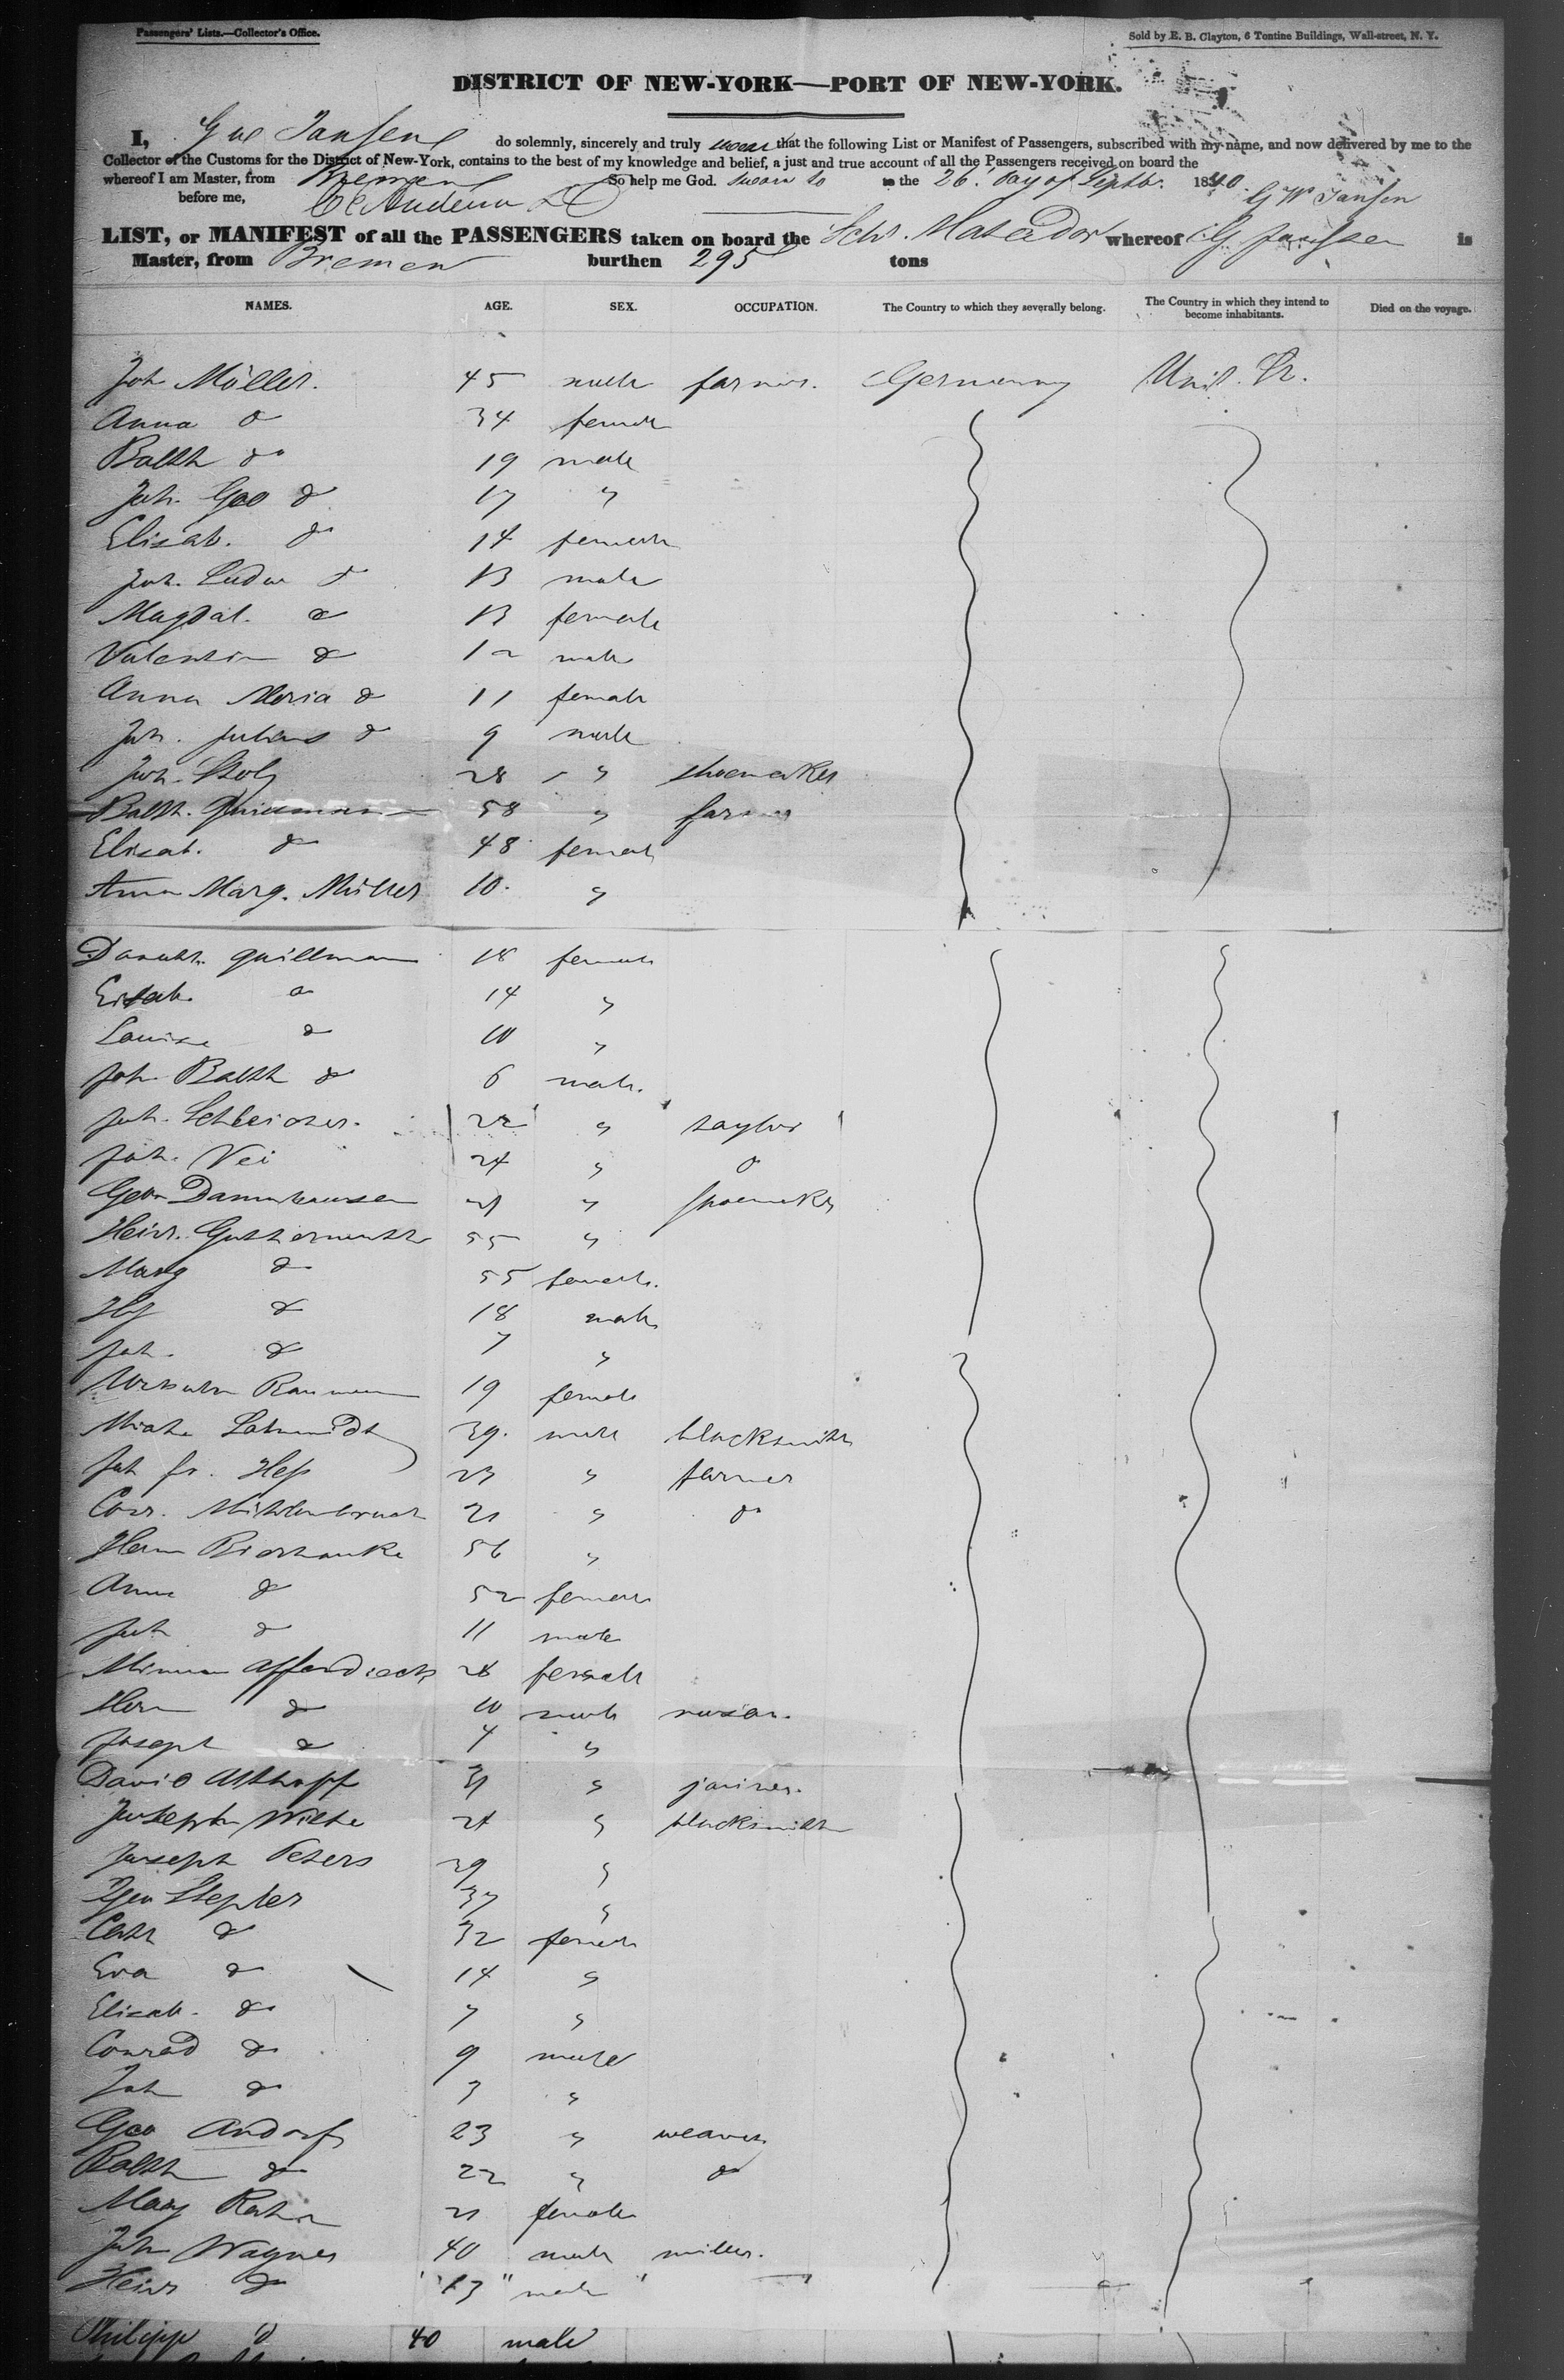 Passengers' Lists.—Collector's Office.
Sold by E. B. Clayton, 6 Tontine Buildings, Wall-street, N. Y.
DISTRICT OF NEW-YORK—PORT OF NEW-YORK.
I, G W Jansen do solemnly, sincerely and truly swear that the following List or Manifest of Passengers, subscribed with my name, and now delivered by me to the
Collector of the Customs for the District of New-York, contains to the best of my knowledge and belief, a just and true account of all the Passengers received on board the
whereof I am Master, from Bremen So help me God. Sworn to to the 26. Day of Septb. 1840. G W Jansen
before me,
LIST, or MANIFEST of all the PASSENGERS taken on board the Matador whereof G Janssen is
Master, from Bremen burthen 295 tons
NAMES. AGE. SEX. OCCUPATION. The Country to which they severally belong. The Country in which they intend to become inhabitants. Died on the voyage.
Joh Müller. 45 male farmer. Germany Unit. St.
Anna do 34 female
Balth do 19 male
Joh. Geo do 17 "
Elisab. do 14 female
Joh. Ludw do 13 male
Magdal. do 13 female
Valentin do 12 male
Anna Maria do 11 female
Joh. Julius do 9 male
Joh. Stolz 28 " shoemaker
Balth. 58 " farmer
Elisab. do 48 female
Anna Marg. Müller 10. "
quillmann 18 female
Elisab. do 14 "
Louise do 10 "
Joh Balth do 6 male.
Joh. Schleicher. 22 " taylor
Joh. Vei 24 " do
Geo Dannhausen " shoemaker
Heinr. Guthermuth 55 "
Marg do 55 female.
Hy do 18 male
Joh. do 7 "
19 female
Schmidt 39. male blacksmith
Joh fr. Hess 23 " farmer
Conr. 21 " do
Herm 56 "
Anna do 52 female
Joh do 11 male
Affendieck 28 female
Herm do 10 male
Joseph do 4 "
David Althoff 31 " joiner.
Joseph Wilke 24 " blacksmith
Joseph Peters 39 "
Geo Stepler 37 "
Cath do 32 female
Eva do 14 "
Elisab. do 7 "
Conrad do 9 male
Joh do 3 "
Geo Andorf 23 " weaver
Balth do 22 " do
Mary 21 female
Joh Wagner 40 male miller.
Heinr do "13" male "
Philipp d 40 male